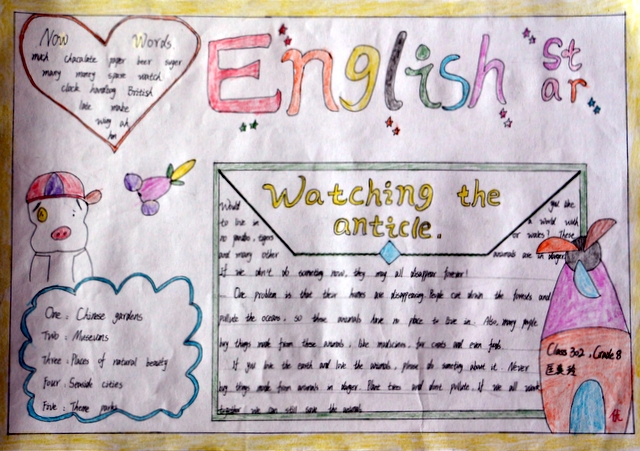 Now Words
much chocolate paper beer
many money spare watch
clock handbag British
late make
way
English
St
ar
Watching the
anticle.
Would you like
to live in a world with
no pandas, tigers or wales? These
and many other animals are in danger.
If we don't do someting now, they may all disappear forever!
One problem is that their homes are disappearing. People cut down the forests and
pollute the oceans, so these animals have no place to live in. Also, many people
buy things made from these animals, like medicines, fur coats and even food.
If you love the earth and love the animals, please do someting about it. Never
buy things made from animals in danger. Plant trees and don't pollute. If we all work
together we can still save the animals
One: Chinese gardens
Two: Museums
Three: Places of natural beauty
Four: Seaside cities
Five: Theme parks
Class 302, Grade 8